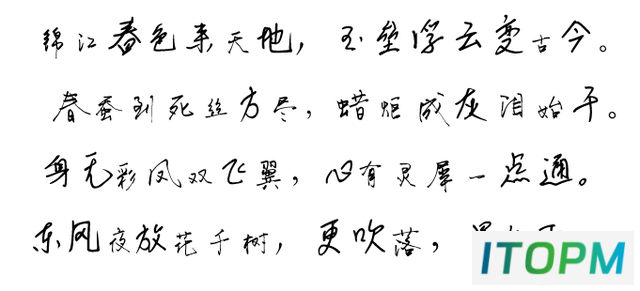 锦江春色来天地，玉垒浮云变古今。
春蚕到死丝方尽，蜡炬成灰泪始干。
身无彩凤双飞翼，心有灵犀一点通。
东风夜放花千树，更吹落，
ITOPM